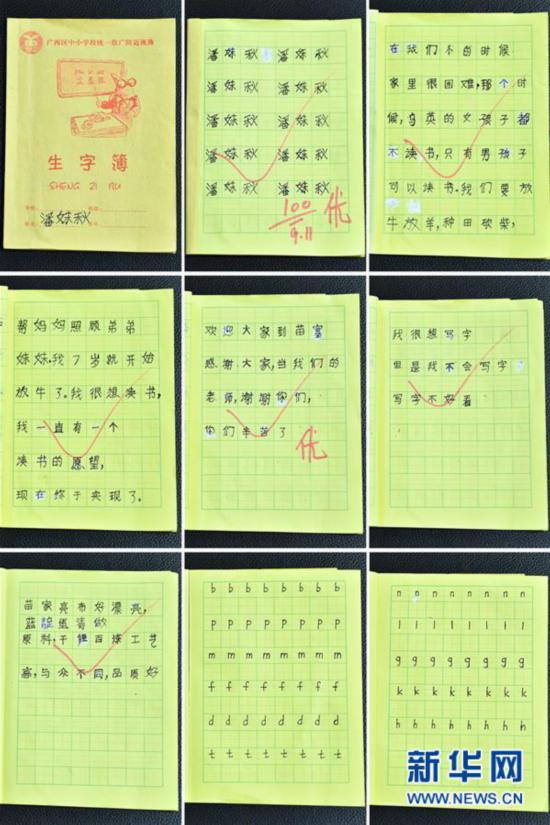 广西区中小学校统一推广防近视簿
生字簿
SHENG ZI BU
潘妹秋
潘妹秋 潘妹秋
潘妹秋 潘妹秋
潘妹秋 潘妹秋
潘妹秋 潘妹秋
潘妹秋 潘妹秋
100 优
9.11
在我们不白时候
家里很困难,那个时
候,乌英的女孩子都
不读书,只有男孩子
可以读书.我们要放
牛放羊,种田砍柴,
帮妈妈照顾弟弟
妹妹.我7岁就开始
放牛了.我很想读书,
我一直有一个
读书的愿望,
现在终于实现了.
欢迎大家到苗寨
感谢大家,当我们的
老师,谢谢你们,
你们辛苦了
优
我很想写字
但是我不会写字
写字不好看
苗家亮布好漂亮,
蓝靛瓶青做
原料,千锤百炼工艺
高,与众不同,品质好
b b b b b b b
p p p p p p p
m m m m m m m
f f f f f f f
d d d d d d d
t t t t t t t
n n n n n n n n
l l l l l l l l
g g g g g g g g
k k k k k k k k
h h h h h h h h
新华网
WWW.NEWS.CN